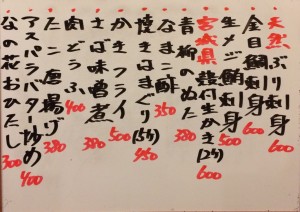 天然ぶり刺身 600
金目鯛刺身 600
生メジ鮪刺身 500
宮城県殻付生かき(2ケ) 600
青柳のぬた 380
なまこ酢 350
焼きはまぐり(5ケ) 450
かきフライ 500
さば味噌煮 380
肉どうふ 400
たこ唐揚げ 380
アスパラバター炒め 400
なの花おひたし 300